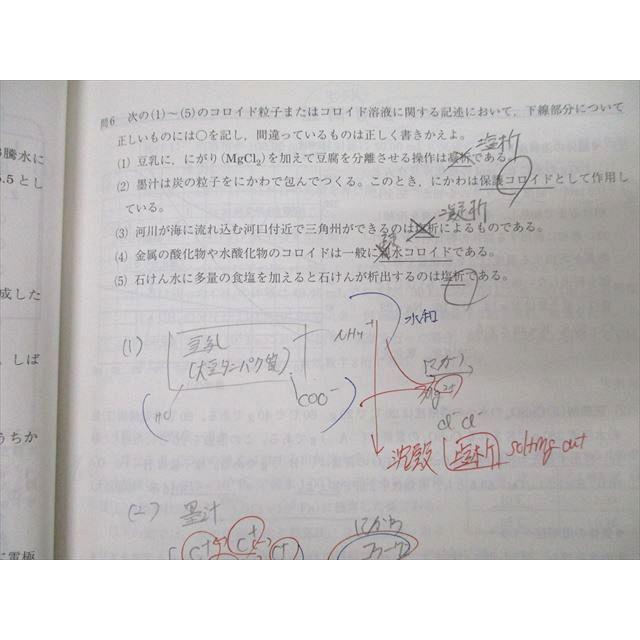 問6 次の(1)~(5)のコロイド粒子またはコロイド溶液に関する記述において，下線部分について
正しいものには○を記し，間違っているものは正しく書きかえよ。
塩析
(1) 豆乳に，にがり(MgCl₂)を加えて豆腐を分離させる操作は凝析である。
(2) 墨汁は炭の粒子をにかわで包んでつくる。このとき，にかわは保護コロイドとして作用し
ている。
凝析
(3) 河川が海に流れ込む河口付近で三角州ができるのは塩析によるものである。
(4) 金属の酸化物や水酸化物のコロイドは一般に水コロイドである。
(5) 石けん水に多量の食塩を加えると石けんが析出するのは塩析である。
騰水に
5.5とし
成した
，しば
うちか
に電極
(1)
豆乳
(大豆タンパク質)
水和
COO⁻
Mg²⁺
Cl⁻ Cl
沈殿 塩析 salting out
(2) 墨汁
にかわ